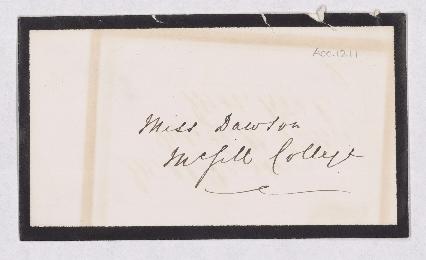 Acc. 1211
Miss Dawson
McGill College